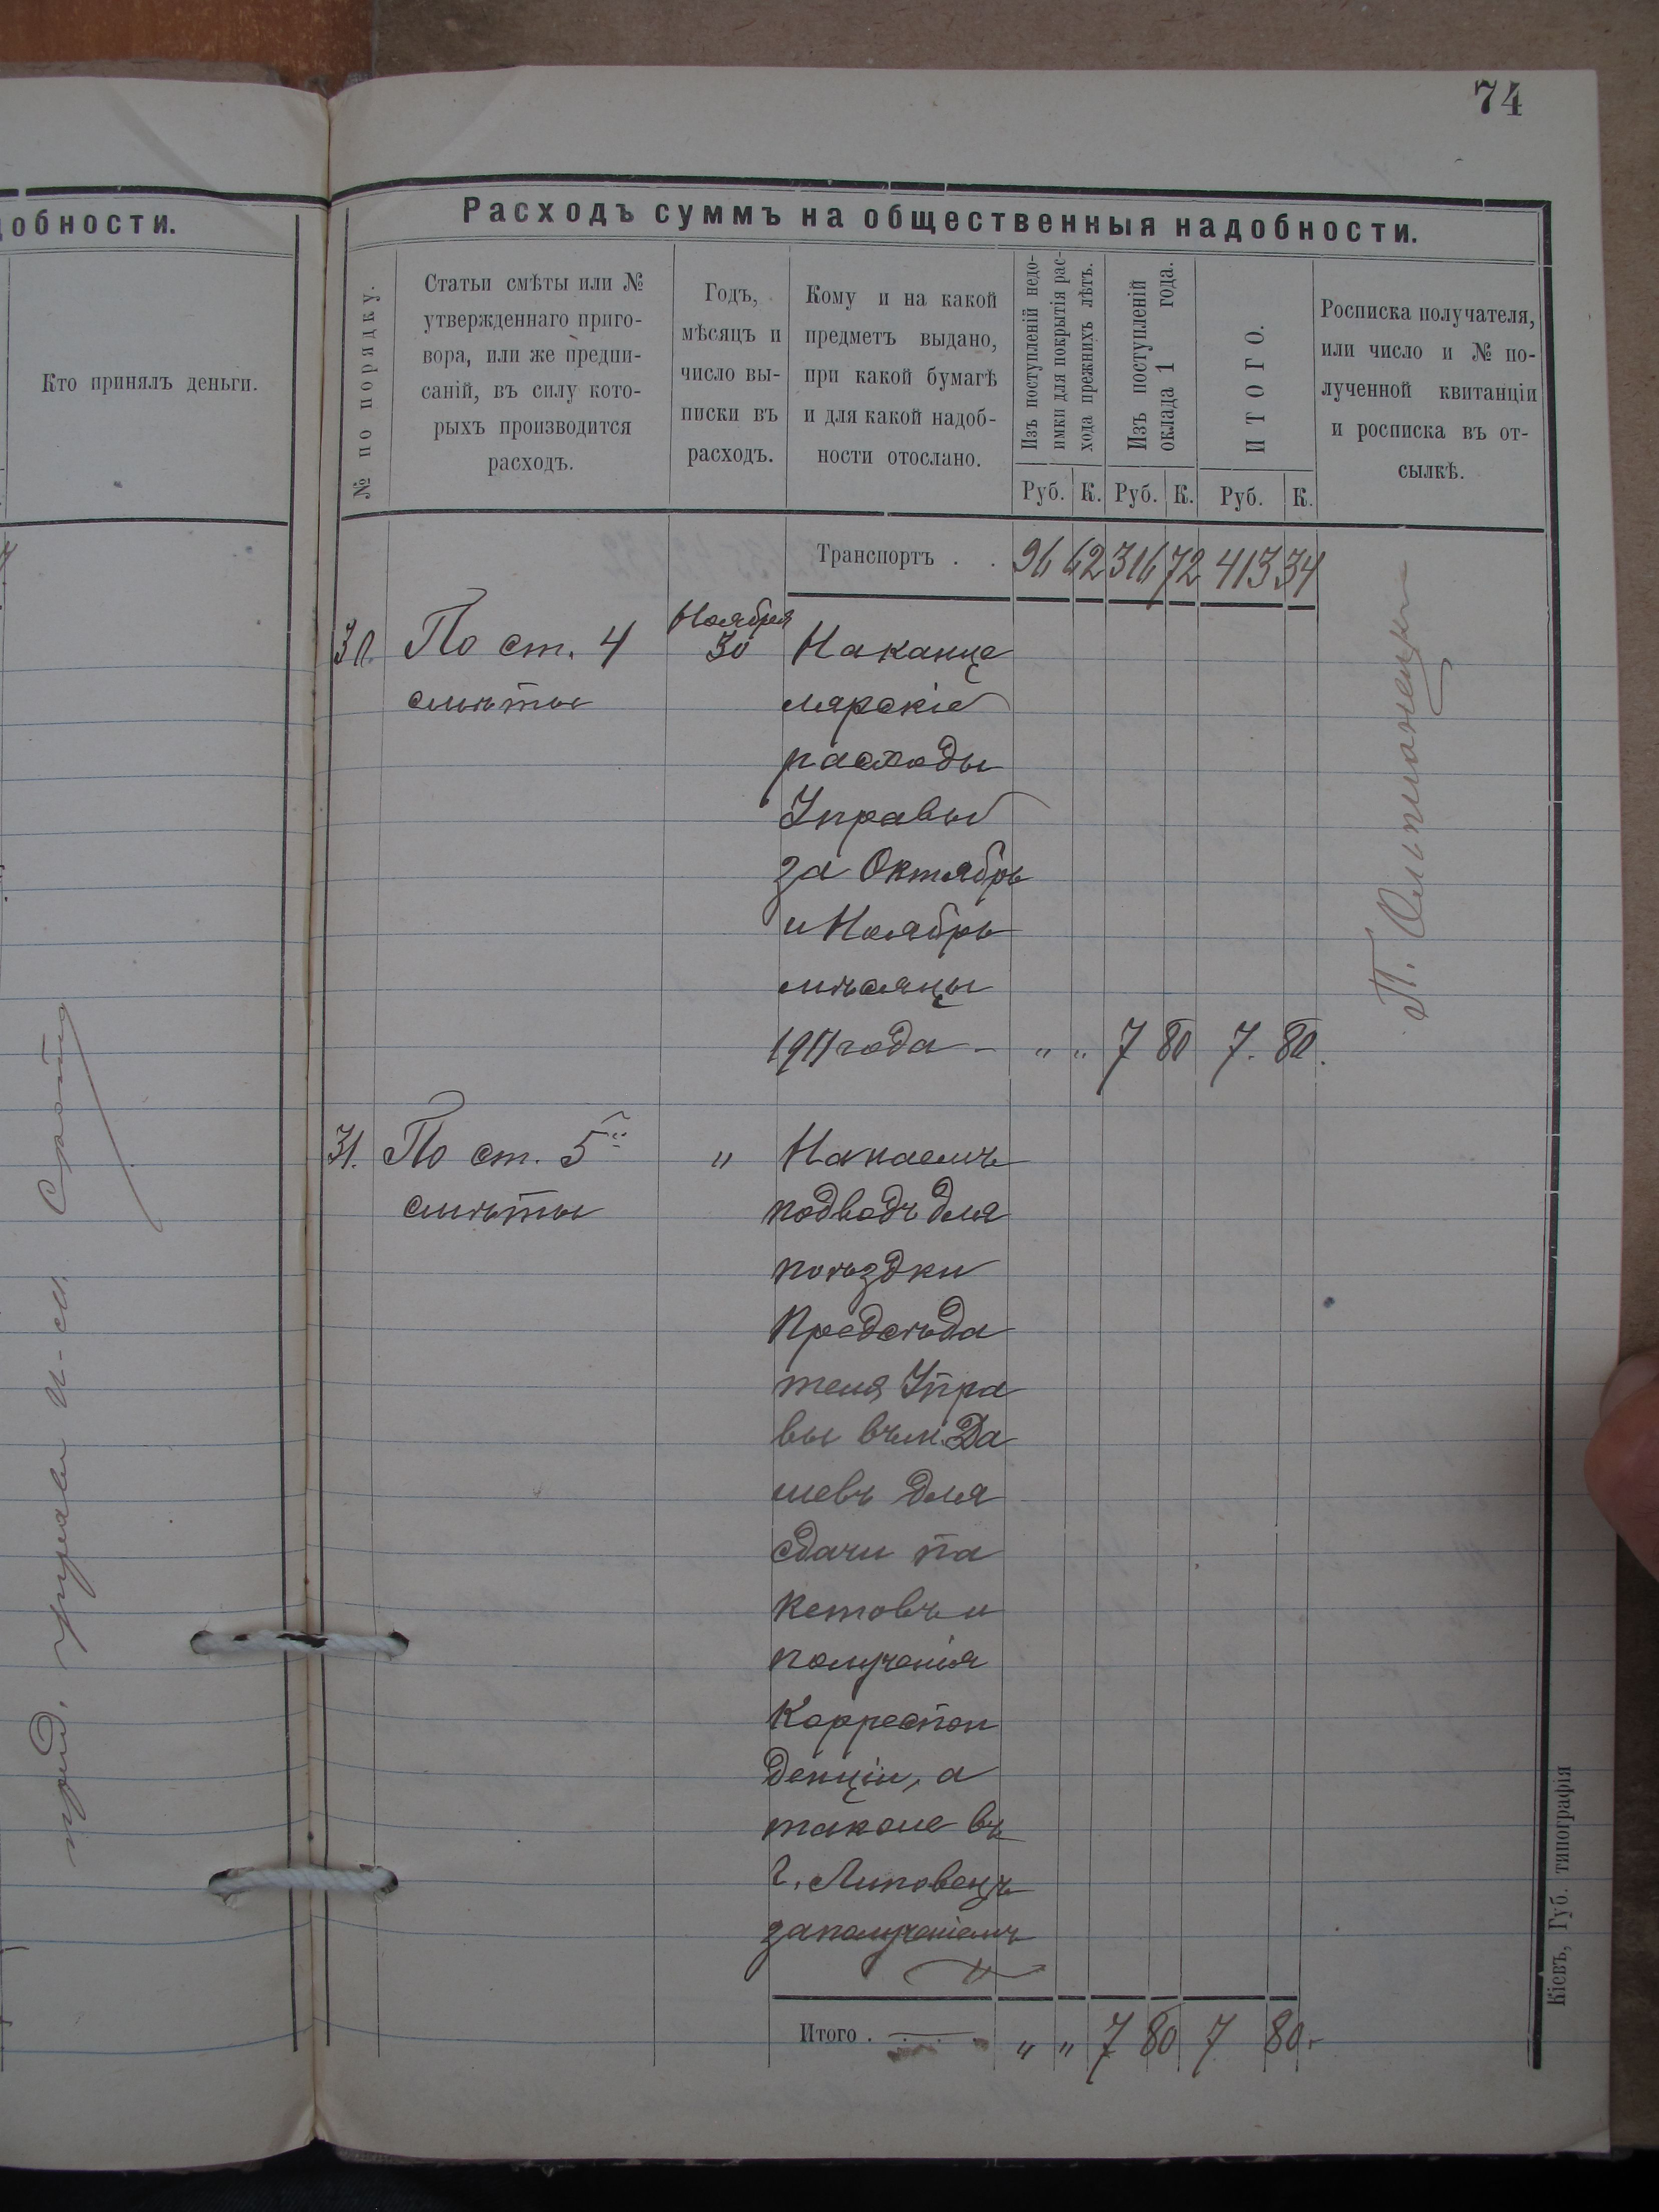 74
добности.
Кто принялъ деньги.
Расходъ суммъ на общественныя надобности.
№ по порядку.
Статьи смѣты или №
утвержденнаго приго-
вора, или же предпи-
саній, въ силу кото-
рыхъ производится
расходъ.
Годъ,
мѣсяцъ и
число вы-
писки въ
расходъ.
Кому и на какой
предметъ выдано,
при какой бумагѣ
и для какой надоб-
ности отослано.
Изъ поступленій недо-
имки для покрытія рас-
хода прежнихъ лѣтъ.
Изъ поступленій
оклада 1 года.
ИТОГО.
Росписка получателя,
или число и № по-
лученной квитанціи
и росписка въ от-
сылкѣ.
Руб. К. Руб. К. Руб. К.
Транспортъ . . 96 62 316 72 413 34
30. По ст. 4 Ноября 30 На канце
смѣты лярскіе
расходы
Управы
за Октябрь
и Ноябрь
мѣсяцы
1911 года - " " 7 80 7. 80.
31. По ст. 5й " Наемъ
смѣты подводъ для
поѣздки
Предсѣда
теля Упра
вы въ м. Да
шевъ для
сдачи па
кетовъ и
полученія
Корреспон
денціи, а
также въ
г. Липовецъ
за полученіемъ
Итого . . . . " " 7 80 7 80.
Кіевъ, Губ. типографія